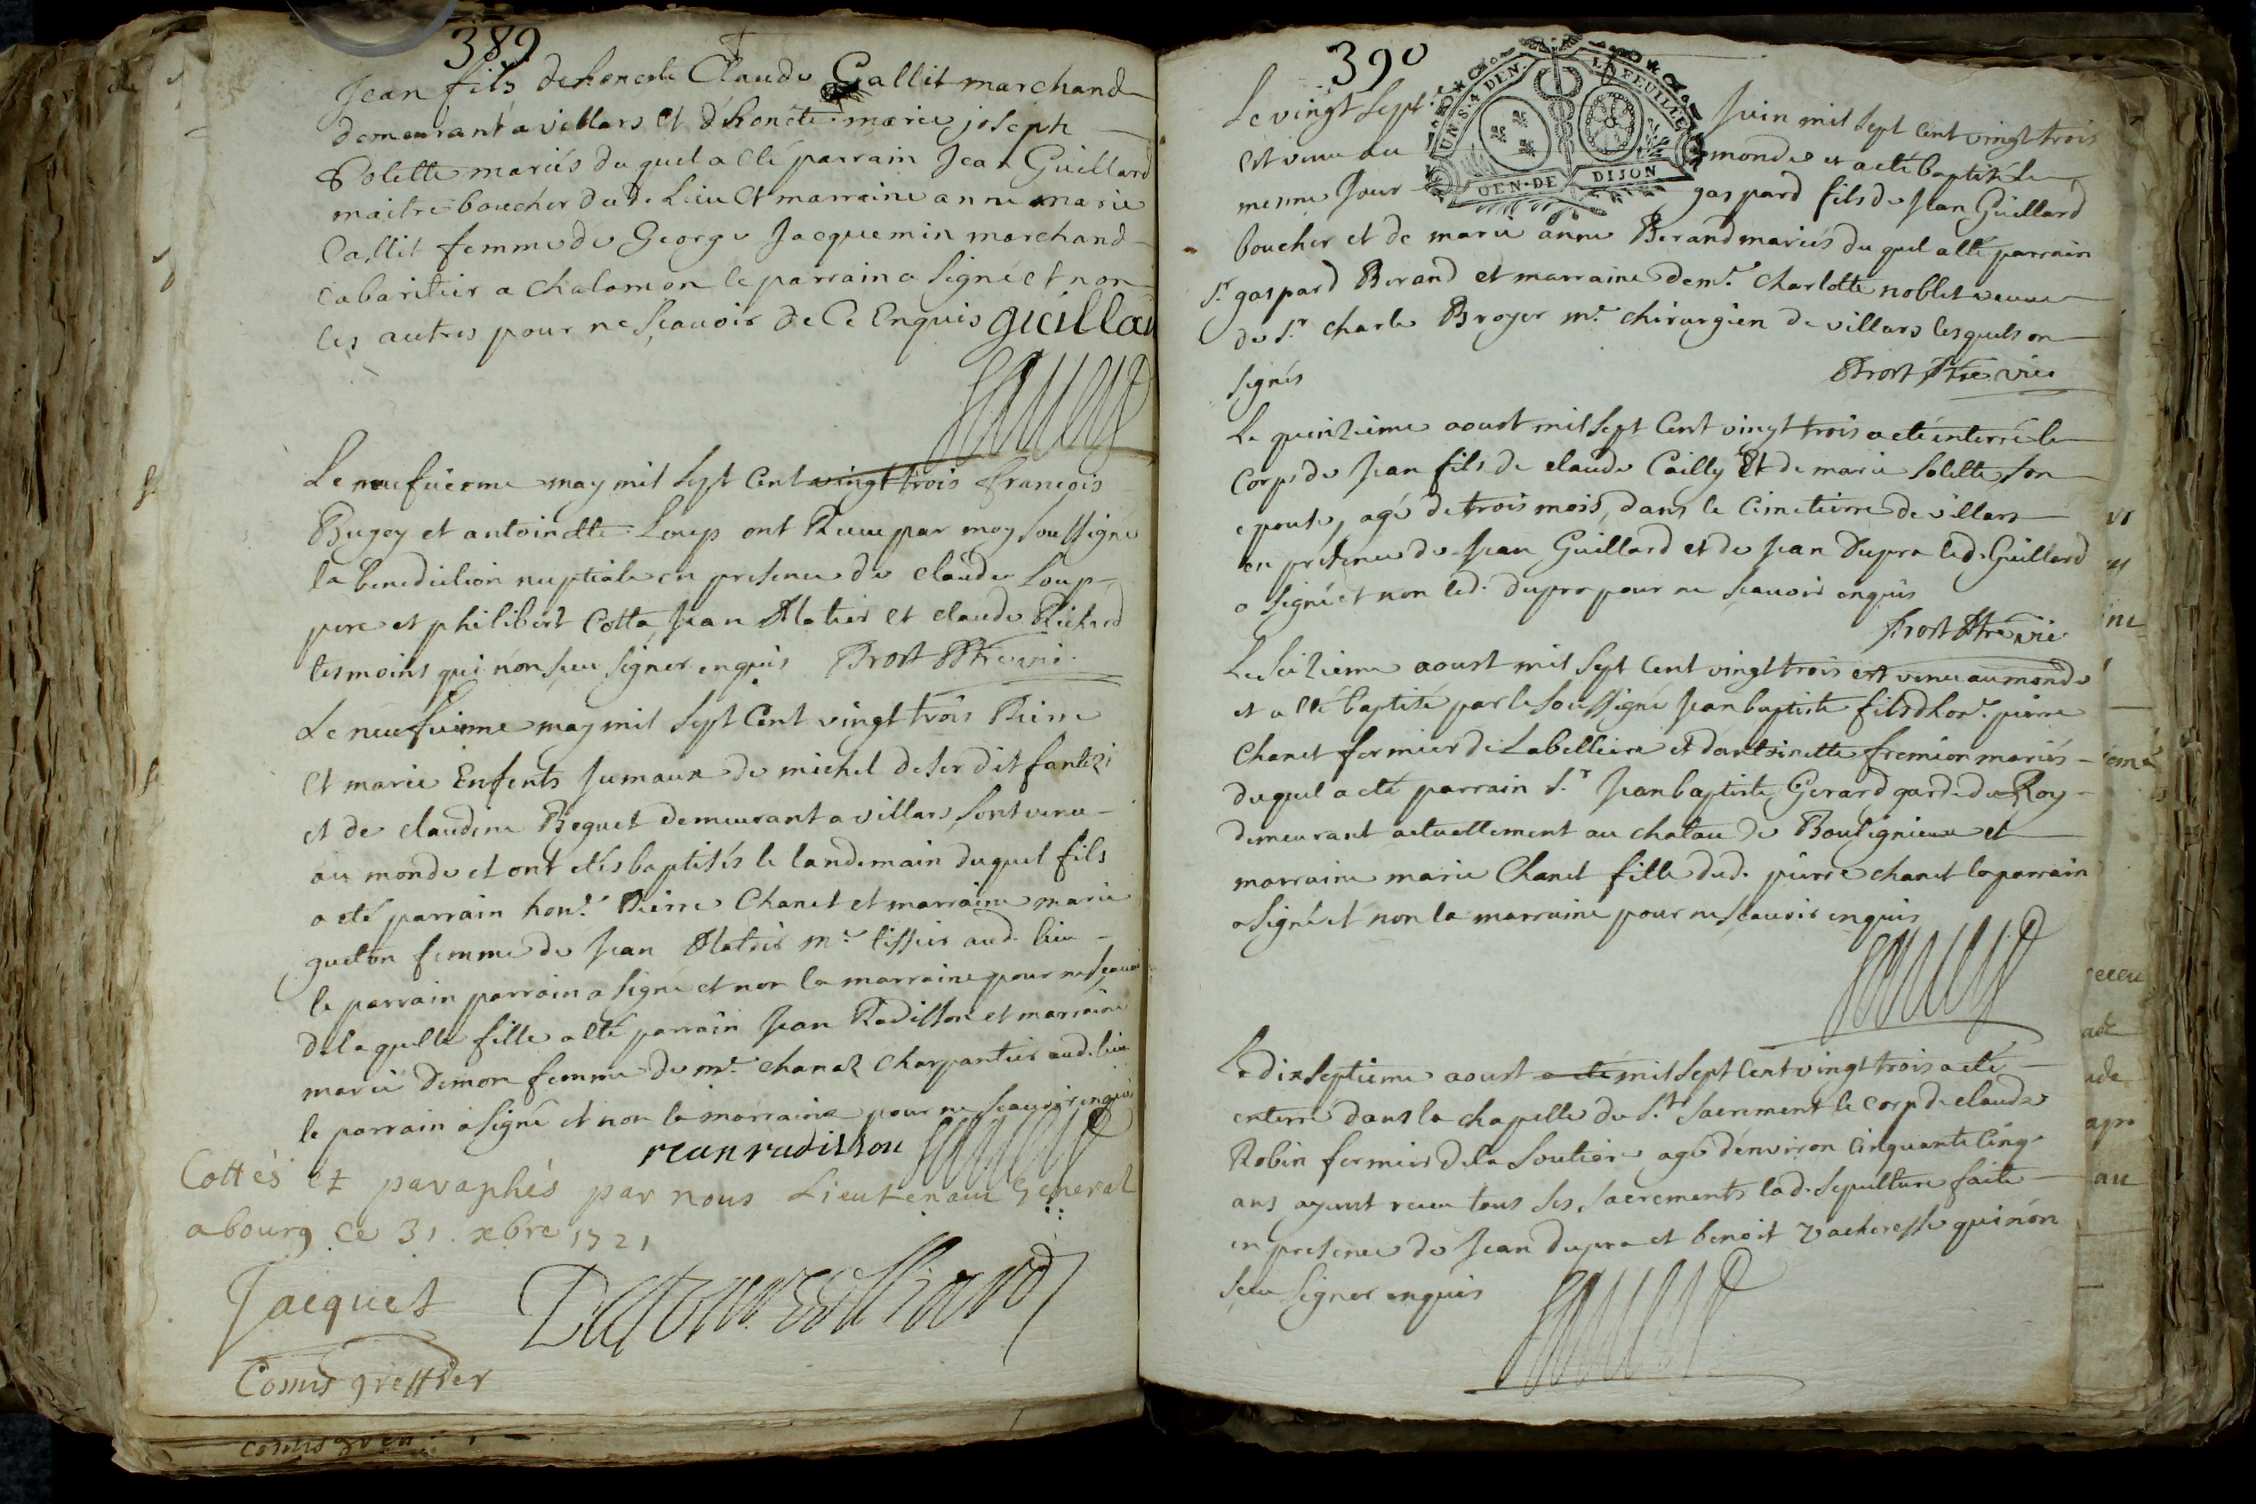 389
Jean fils dhoneste Claude Gallit marchand
demeurant a villars et d'honête marie joseph
Solette mariés du quel a eté parrain Jean Guillard
maitre boucher dud. Lieu et marraine anne marie
Callit femme de George Jacquemin marchand
cabaritier a chalamon le parrain a signé et non
les autres pour ne scavoir de Ce Enquis guillar
Le neufieme may mil sept Cent vingt trois françois
Bugey et antoinette Loup ont Receu par moy soussigné
la benediction nuptiale en presence de claude Loup
pere et philibert Cotta, Jean Matier et claude Richard
tesmoins qui n'on sceu signer enquis Prost Ptre vic.
Le neufieme may mil sept Cent vingt trois Pierre
et marie Enfents Jumaux de michel deser dit
et de claudine Beguet demeurant a villars sont venu
au monde et ont etés baptisés le landemain duquel fils
a eté parrain hon.e Pierre Chanet et marraine marie
guelon femme de Jean Matier m.e tissier aud. lieu
le parrain parrain a signé et non la marraine pour ne scavoir
de laquelle fille a eté parrain Jean Radisson et marraine
marie Demon femme de m.e chanaz charpantier aud. lieu
le parrain a signé et non la marraine pour ne scavoir enquis
jean radisson
Cottés et paraphés par nous Lieutenant General
a bourg ce 31. xbre 1721
Jacquet
Comis greffier
390
UN S. 4 DEN. LA FEUILLE
GEN. DE DIJON
Le vingt sept Juin mil sept cent vingt trois
est venu au monde et a eté baptisé le
mesme Jour gaspard fils de Jean Guillard
boucher et de marie anne Berand mariés du quel a eté parrain
S.r gaspard Berand et marraine dem.e Charlotte noblet veuve
de S.r charle Broyer m.e chirurgien de villars lesquels on
signés Prost Ptre vic
Le quinzieme aoust mil sept Cent vingt trois a eté enterré le
corps de Jean fils de claude Cailly Et de marie Solette son
epouse, agé de trois mois, dans le Cimetierre de villars
en presence de Jean Guillard et de Jean Dupra led. Guillard
a signé et non led. dupra pour ne scavoir enquis
Prost Ptre vic
Le seizieme aoust mil sept cent vingt trois est venu au monde
et a eté baptisé par le soussigné Jean baptiste fils dhon.e pierre
Chanet fermier de Labelliere et d'antoinette fremion mariés
duquel a eté parrain S.r Jean baptiste Gerard garde du Roy
demeurant actuellement au chatau de Bouligneux et
marraine marie Chanet fille dud. pierre chanet le parrain
a signé et non la marraine pour ne scavoir enquis
Le dixseptieme aoust a eté mil sept Cent vingt trois a eté
enterré dans la chapelle du S.t Sacrement le corp de claude
Robin fermier de la Soutiere agé d'environ Cinquante Cinq
ans ayant receu tous ses sacrements lad. sepulture faite
en presence de Jean dupra et benoit vacheresse qui n'on
sceu signer enquis